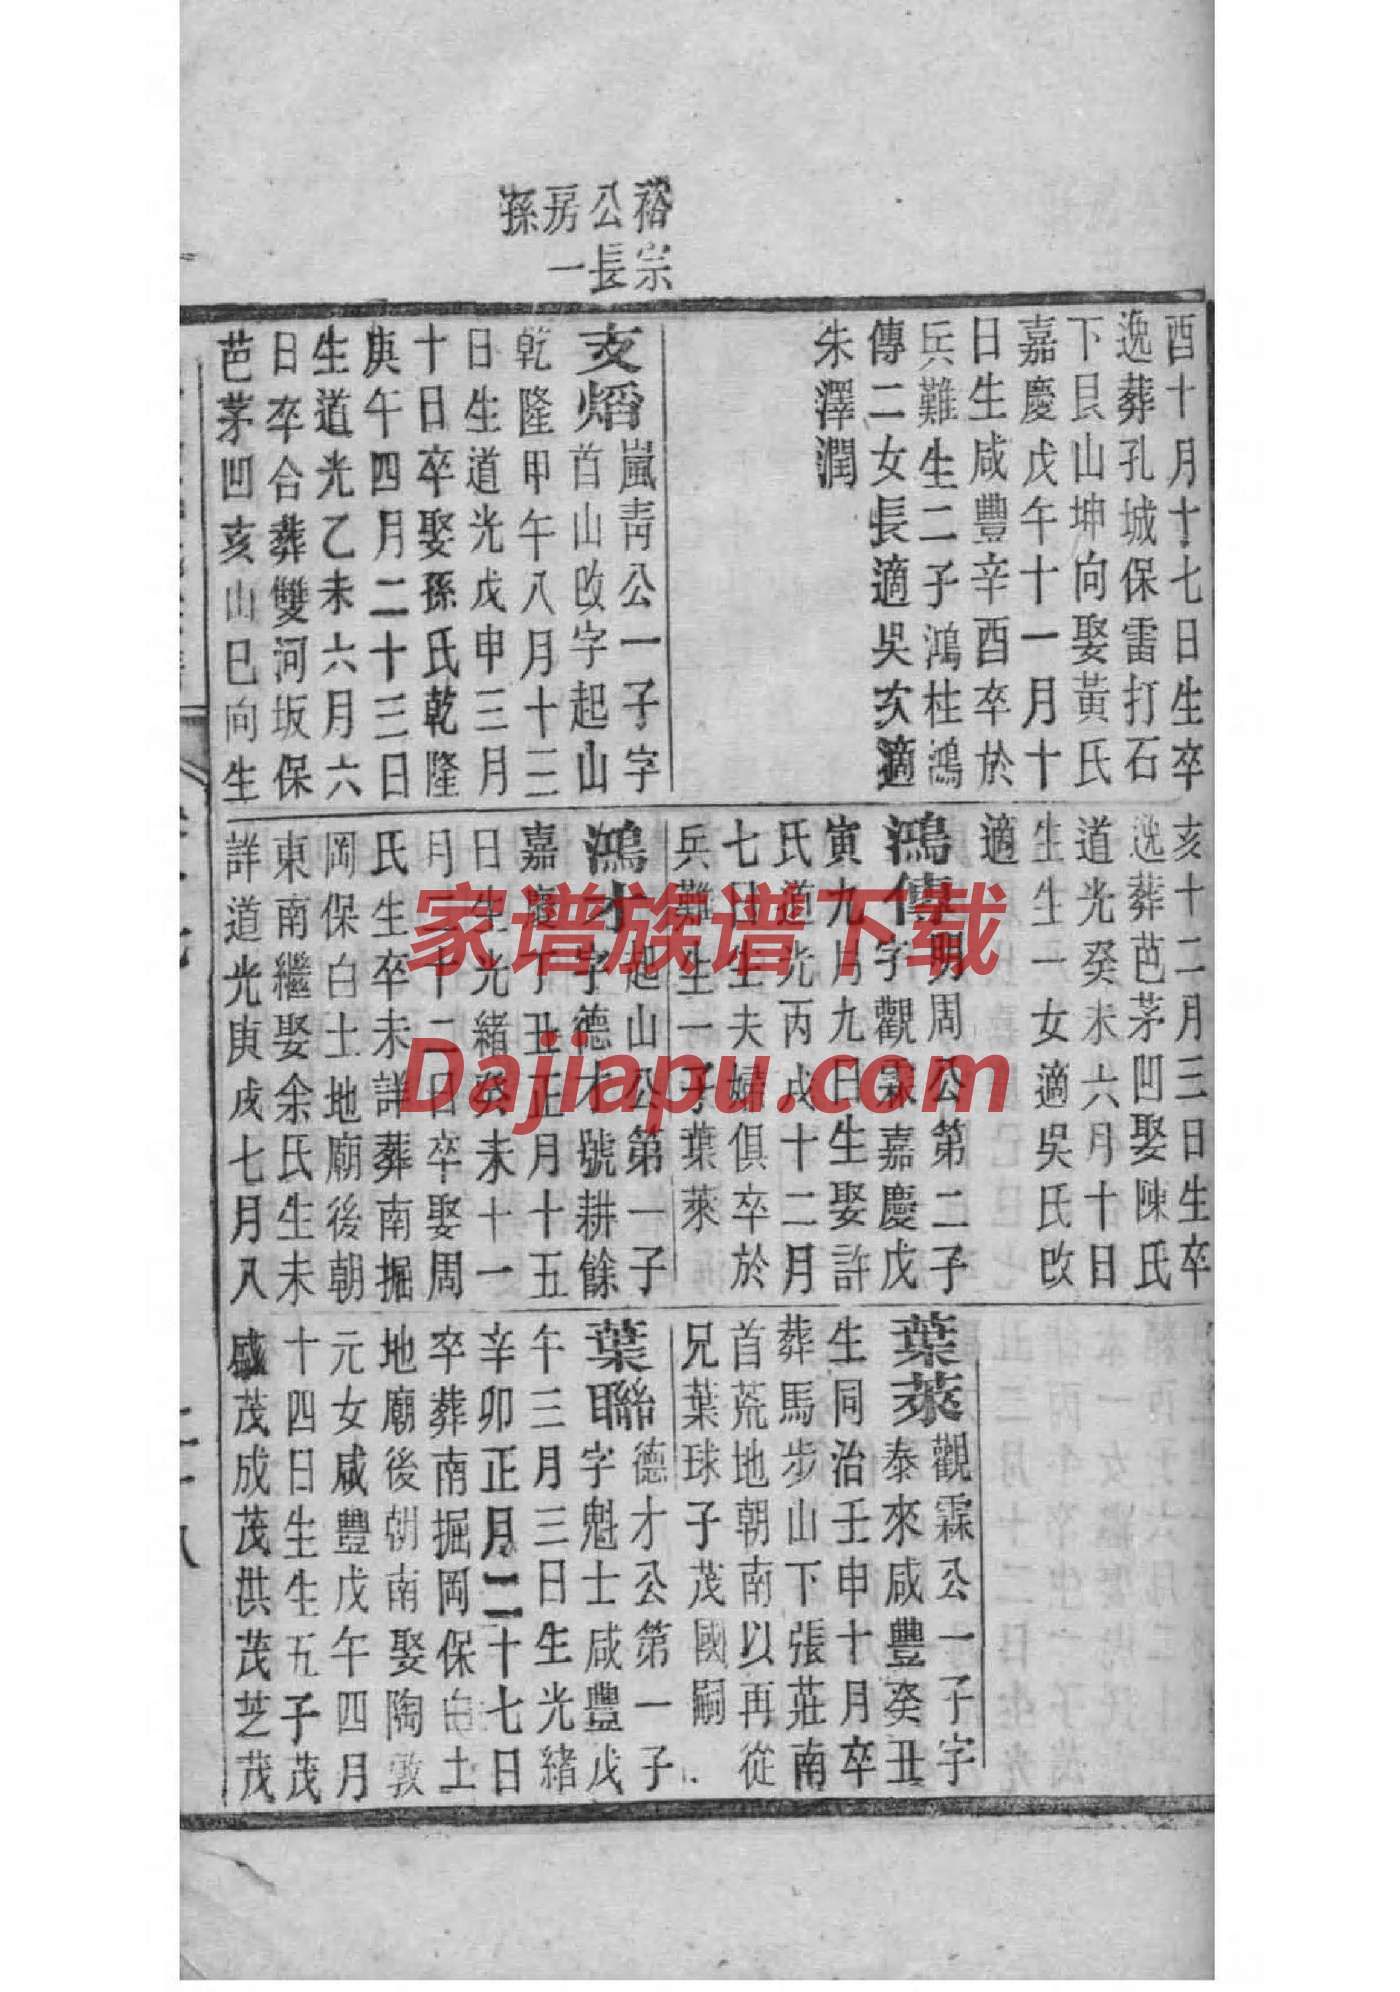 裕宗
公長
房一
孫
酉十月十七日生卒
逸葬孔城保雷打石
下艮山坤向娶黃氏
嘉慶戊午十一月十
日生咸豐辛酉卒於
兵難生二子鴻柱鴻
傳二女長適吳次適
朱澤潤
支熖嵐青公一子字
首山改字起山
乾隆甲午八月十二
日生道光戊申三月
十日卒娶孫氏乾隆
庚午四月二十三日
生道光乙未六月六
日卒合葬雙河坂保
芭茅凹亥山巳向生
亥十二月三日生卒
逸葬芭茅凹娶陳氏
道光癸未六月十日
生生一女適吳氏改
適
鴻傳明周公第二子
字觀霖嘉慶戊
寅九月九日生娶許
氏道光丙戌十二月
七日生夫婦俱卒於
兵難生一子葉萊
鴻才起山公第一子
字德才號耕餘
嘉慶丁丑正月十五
日生光緒癸未十一
月二十二日卒娶周
氏生卒未詳葬南掘
岡保白土地廟後朝
東南繼娶余氏生未
詳道光庚戌七月入
葉萊觀霖公一子字
泰來咸豐癸丑
生同治壬申十月卒
葬馬步山下張莊南
首荒地朝南以再從
兄葉球子茂國嗣
葉聯德才公第一子
字魁士咸豐戊
午三月三日生光緒
辛卯正月二十七日
卒葬南掘岡保白土
地廟後朝南娶陶敦
元女咸豐戊午四月
十四日生生五子茂
盛茂成茂洪茂芝茂
家谱族谱下载
Dajiapu.com